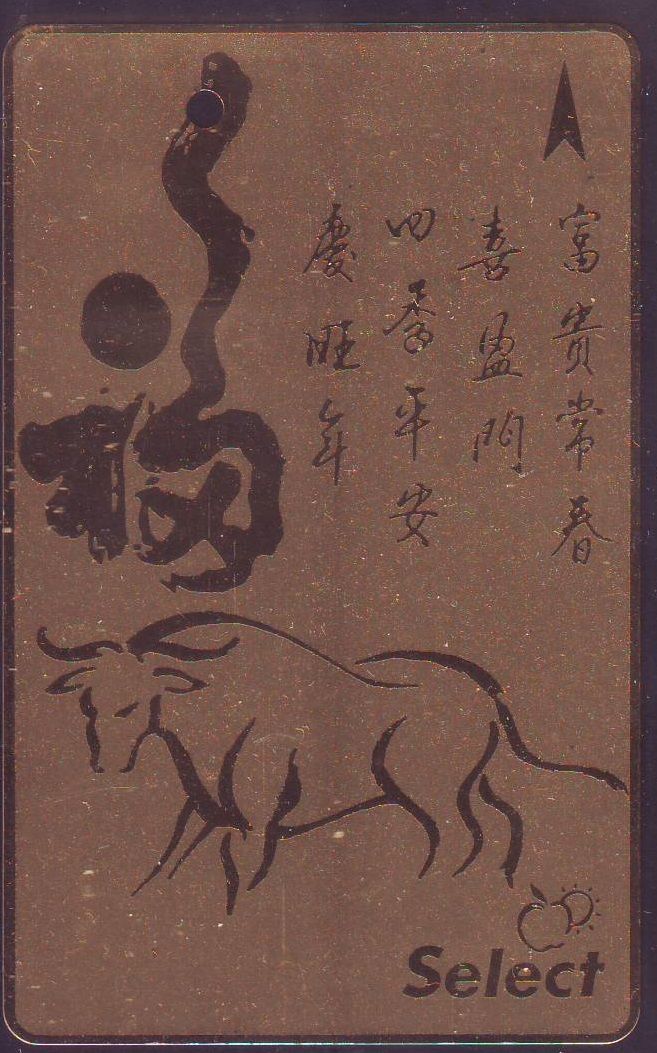 富貴常春
喜盈門
四季平安
慶旺年
Select